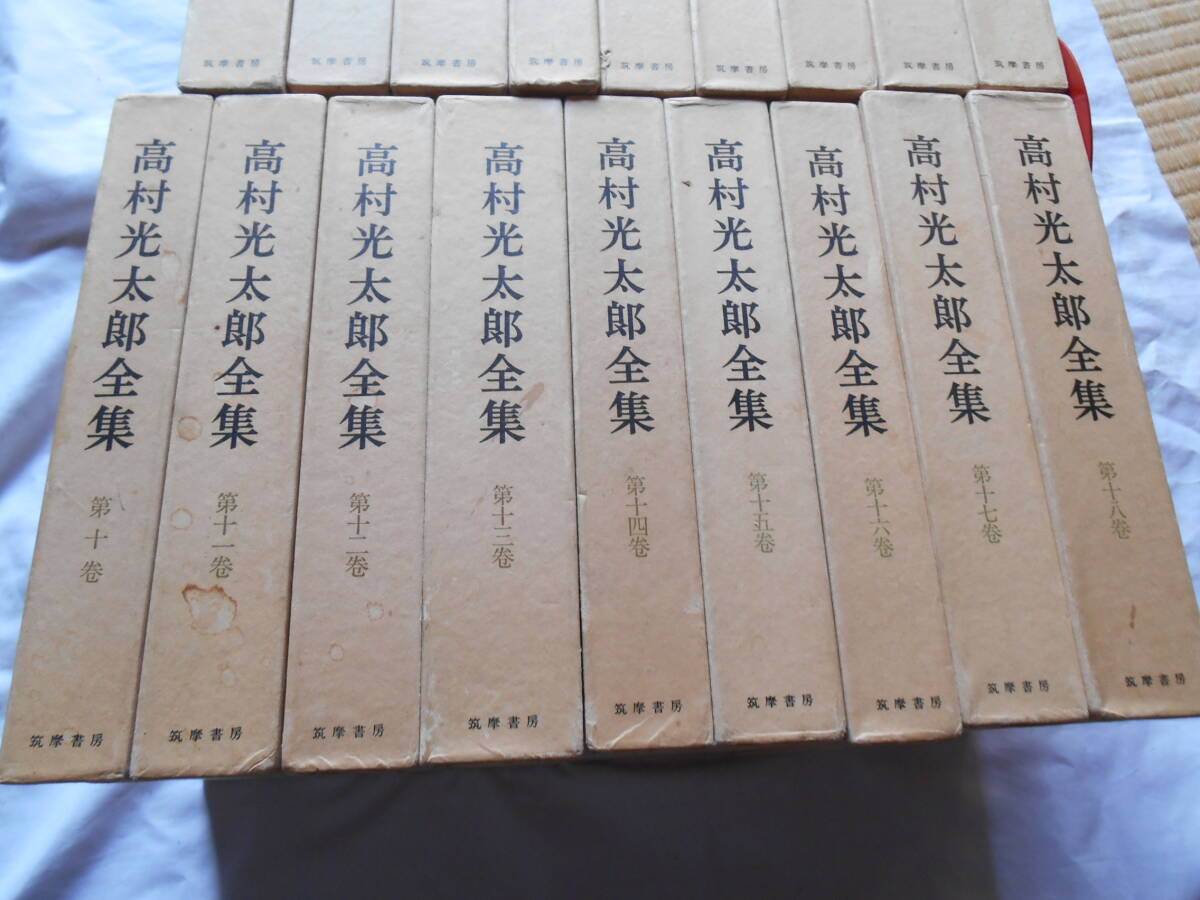 筑摩書房
筑摩書房
筑摩書房
筑摩書房
筑摩書房
筑摩書房
筑摩書房
筑摩書房
筑摩書房
高村光太郎全集
第十巻
筑摩書房
高村光太郎全集
第十一巻
筑摩書房
高村光太郎全集
第十二巻
筑摩書房
高村光太郎全集
第十三巻
筑摩書房
高村光太郎全集
第十四巻
筑摩書房
高村光太郎全集
第十五巻
筑摩書房
高村光太郎全集
第十六巻
筑摩書房
高村光太郎全集
第十七巻
筑摩書房
高村光太郎全集
第十八巻
筑摩書房